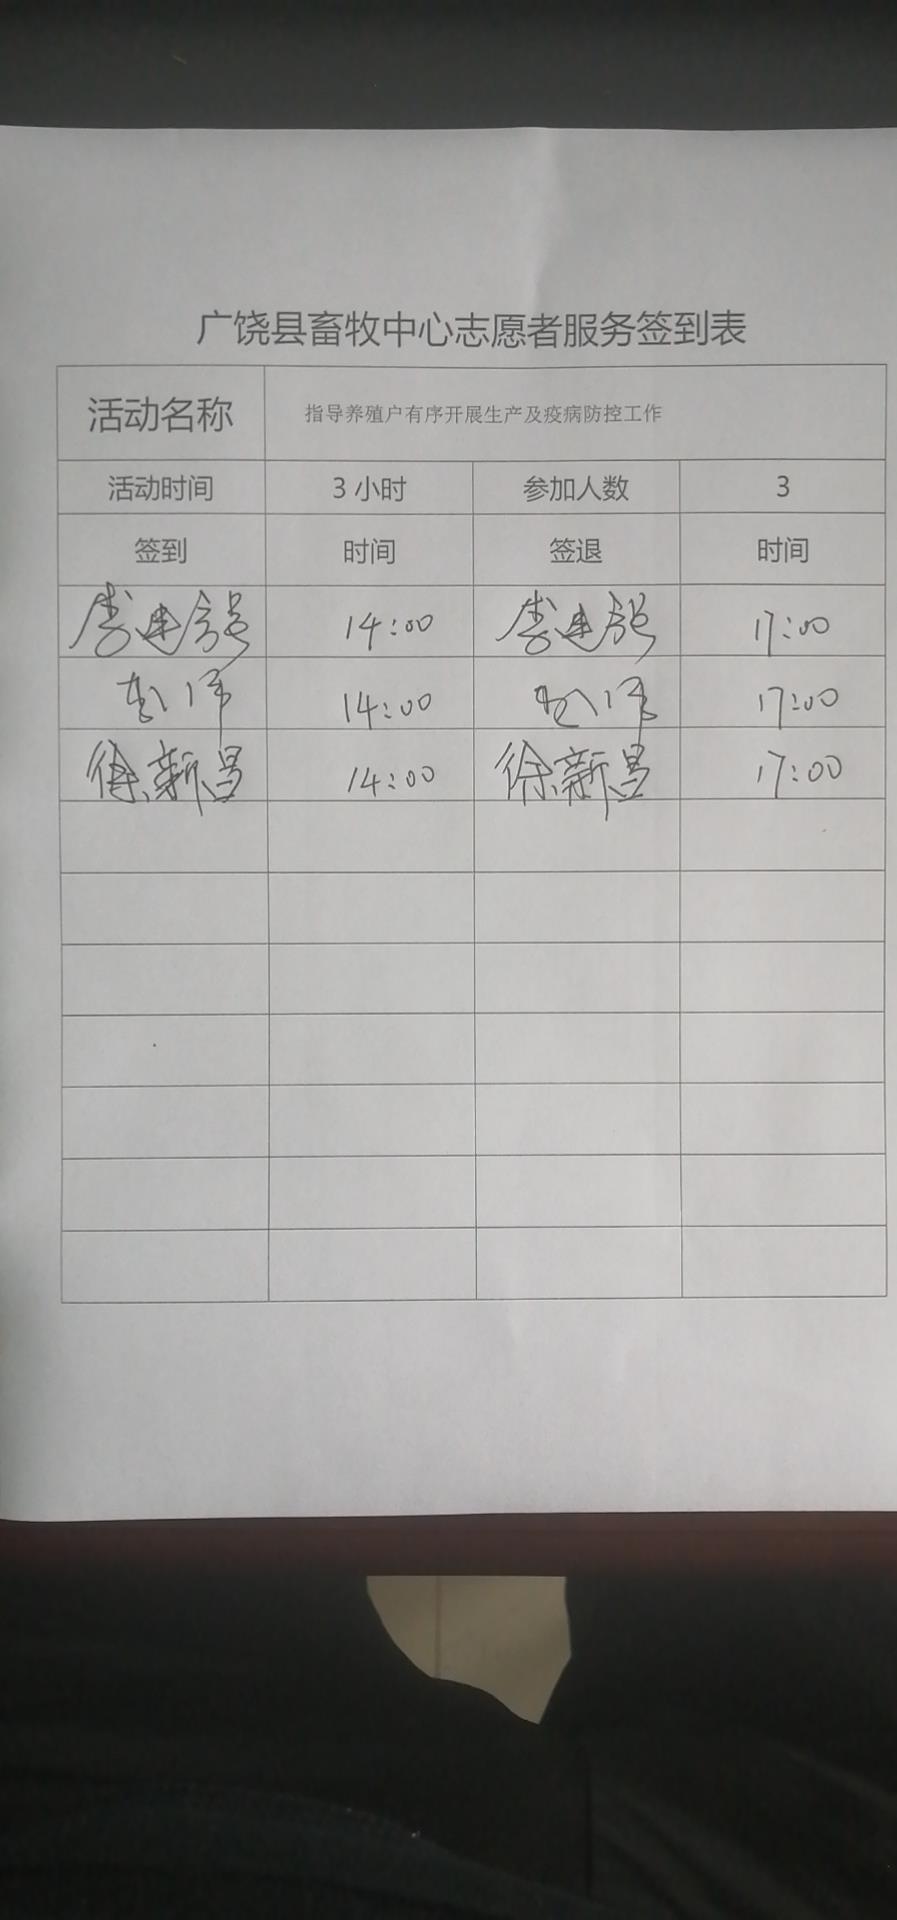 广饶县畜牧中心志愿者服务签到表
活动名称 指导养殖户有序开展生产及疫病防控工作
活动时间 3小时 参加人数 3
签到 时间 签退 时间
李建 14:00 李建 17:00
14:00 17:00
徐新昌 14:00 徐新昌 17:00